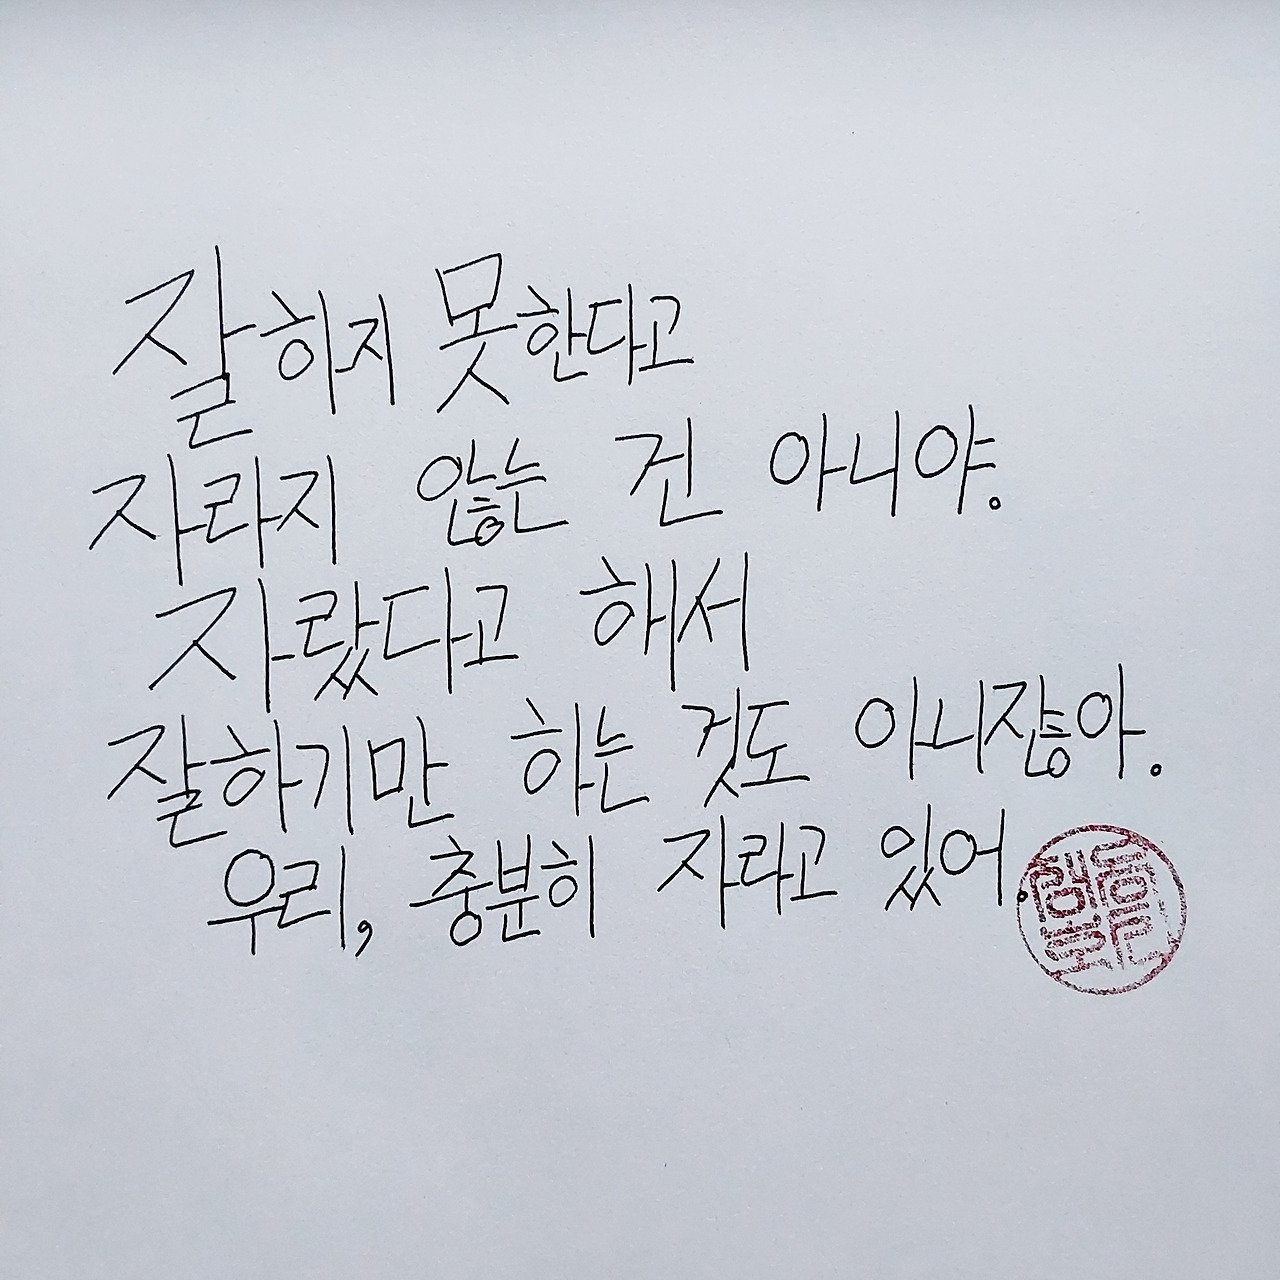 잘하지 못한다고
자라지 않는 건 아니야.
자랐다고 해서
잘하기만 하는 것도 아니잖아.
우리, 충분히 자라고 있어.